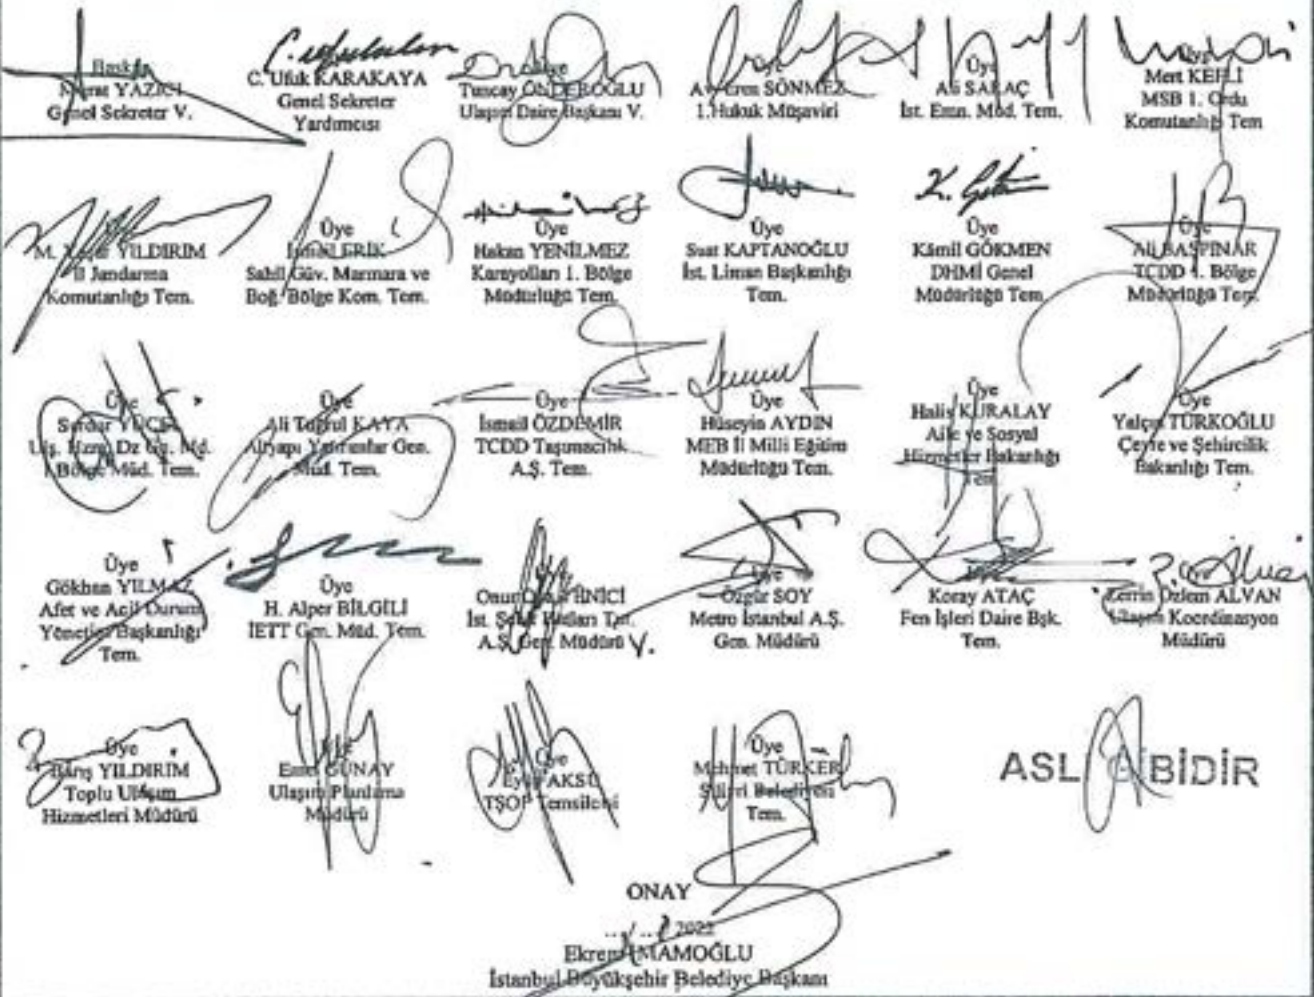 Başkan
Murat YAZICI
Genel Sekreter V.
C. Ufuk KARAKAYA
Genel Sekreter
Yardımcısı
Üye
Tuncay ÖNDEROĞLU
Ulaşım Daire Başkanı V.
Üye
Av. Eren SÖNMEZ
1.Hukuk Müşaviri
Üye
Ali SARAÇ
İst. Emn. Müd. Tem.
Üye
Mert KEFLİ
MSB 1. Ordu
Komutanlığı Tem
YILDIRIM
İl Jandarma
Komutanlığı Tem.
Üye
İsmail ERİK
Sahil Güv. Marmara ve
Boğ. Bölge Kom. Tem.
Üye
Hakan YENİLMEZ
Karayolları 1. Bölge
Müdürlüğü Tem.
Üye
Suat KAPTANOĞLU
İst. Liman Başkanlığı
Tem.
Üye
Kâmil GÖKMEN
DHMİ Genel
Müdürlüğü Tem.
Üye
Ali BAŞPINAR
TCDD 1. Bölge
Müdürlüğü Tem.
Üye
Serdar YÜCEL
Bölge Müd. Tem.
Üye
Ali Tuğrul KAYA
Altyapı Yatırımlar Gen.
Müd. Tem.
Üye
İsmail ÖZDEMİR
TCDD Taşımacılık
A.Ş. Tem.
Üye
Hüseyin AYDIN
MEB İl Milli Eğitim
Müdürlüğü Tem.
Üye
Halis KURALAY
Aile ve Sosyal
Hizmetler Bakanlığı
Tem.
Üye
Yalçın TÜRKOĞLU
Çevre ve Şehircilik
Bakanlığı Tem.
Üye
Gökhan YILMAZ
Afet ve Acil Durum
Yönetim Başkanlığı
Tem.
Üye
H. Alper BİLGİLİ
İETT Gen. Müd. Tem.
İst. Şehir Hatları
A.Ş. Gen. Müdürü V.
Üye
Özgür SOY
Metro İstanbul A.Ş.
Gen. Müdürü
Koray ATAÇ
Fen İşleri Daire Bşk.
Tem.
Üye
Zerrin Özlem ALVAN
Ulaşım Koordinasyon
Müdürü
Üye
Barış YILDIRIM
Toplu Ulaşım
Hizmetleri Müdürü
GÜNAY
Ulaşım Planlama
Müdürü
Üye
AKSU
TŞOF Temsilcisi
Üye
Mehmet TÜRKER
Silivri Belediyesi
Tem.
ASLI GİBİDİR
ONAY
2022
Ekrem İMAMOĞLU
İstanbul Büyükşehir Belediye Başkanı